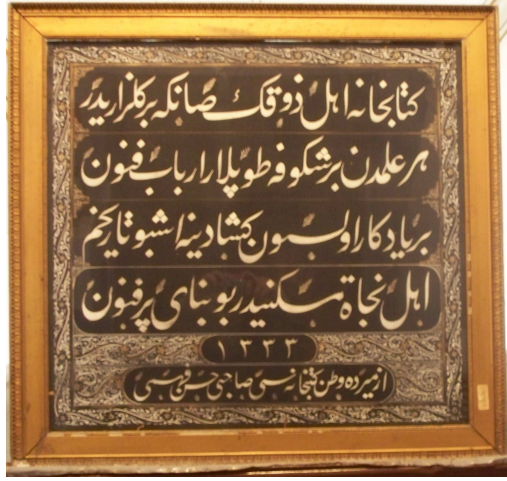 كتابخانه اهل ذوقك صانكه بر كلزاريدر
هر علمدن بر شكوفه طوپلار ارباب فنون
بر يادكار اولسون كشادينه اشبو تاريخم
اهل نجاة مسكنيدر بو بناى پر فنون
١٣٣٣
ازميرده وطن كتبخانه سى صاحبى حسن فهمى